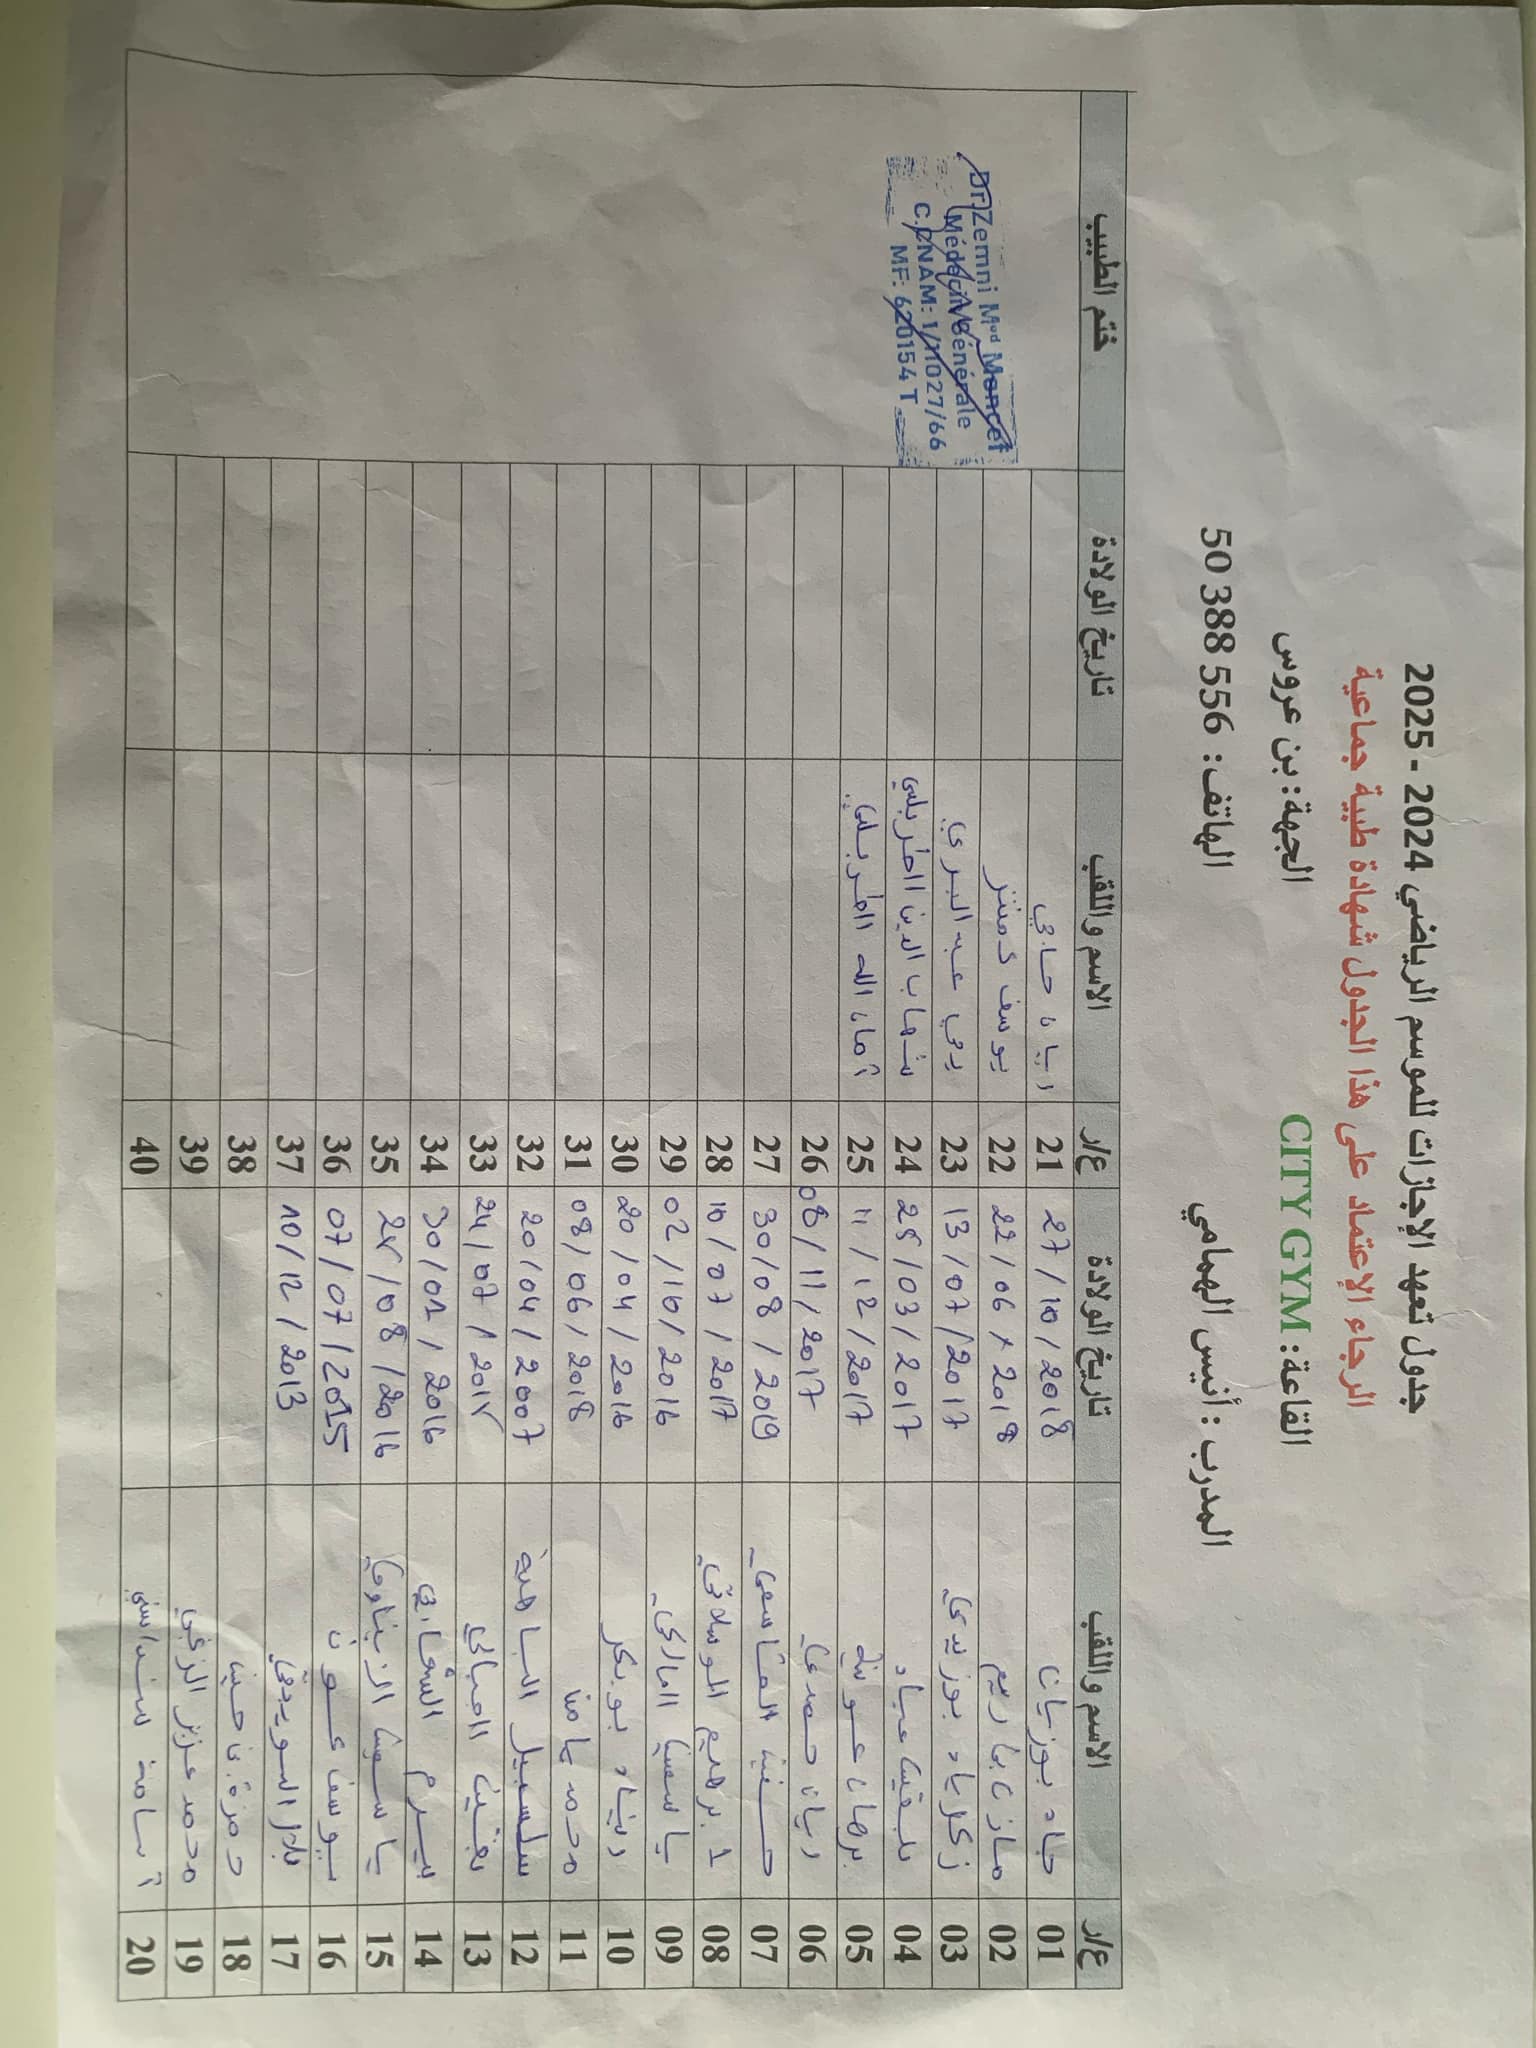 جدول تعهد الإجازات للموسم الرياضي 2024 - 2025
الرجاء الإعتماد على هذا الجدول شهادة طبية جماعية
القاعة: CITY GYM الجهة: بن عروس
المدرب : أنيس الهمامي الهاتف: 50 388 556
ع/ر الاسم واللقب تاريخ الولادة ع/ر الاسم واللقب تاريخ الولادة ختم الطبيب
01 جاد بوزيانا 27/10/2018 21 ريان حاجي
02 مازن بماريم 22/06/2018 22 يوسف
03 زكرياء بوزيدي 13/07/2017 23 عبد البري
04 بلقيس عياد 25/03/2017 24 شهاب الدين الطربلسي
05 برهان عويني 11/12/2017 25 آمان الله الطربلسي
06 ريان حمدي 08/11/2017 26
07 القاسمي 30/08/2019 27
08 ابرهيم الوسلاتي 10/07/2017 28
09 ياسمين 02/10/2016 29
10 ريناد بوبكر 20/04/2016 30
11 محمد يامن 08/06/2018 31
12 سلسبيل الباهية 20/04/2007 32
13 24/07/2017 33
14 بيرم 30/01/2016 34
15 ياسمين الزيناوي 25/08/2016 35
16 يوسف عون 07/07/2015 36
17 بلال السويدي 10/12/2013 37
18 حمزة بن حسين 38
19 محمد عزيز الزغبي 39
20 آسامة سنداسني 40
Dr Zemni Med Moncef
Médecine Générale
C.CNAM: 1/11027/66
MF: 620154 T